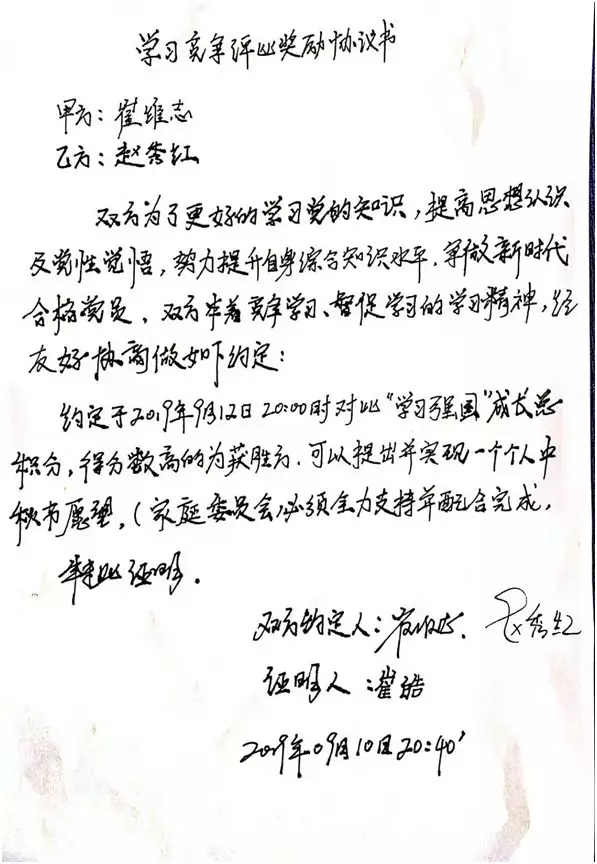 学习竞争评比奖励协议书
甲方：崔维志
乙方：赵秀红
双方为了更好的学习党的知识，提高思想认识
及党性觉悟，努力提升自身综合知识水平，争做新时代
合格党员，双方本着竞争学习、督促学习的学习精神，经
友好协商做如下约定：
约定于2019年9月12日20:00时对比“学习强国”成长总
积分，得分数高的为获胜方，可以提出并实现一个个人中
秋节愿望，（家庭委员会）必须全力支持并配合完成，
特此证明。
双方约定人：崔维志 赵秀红
证明人：崔皓
2019年09月10日20:40'